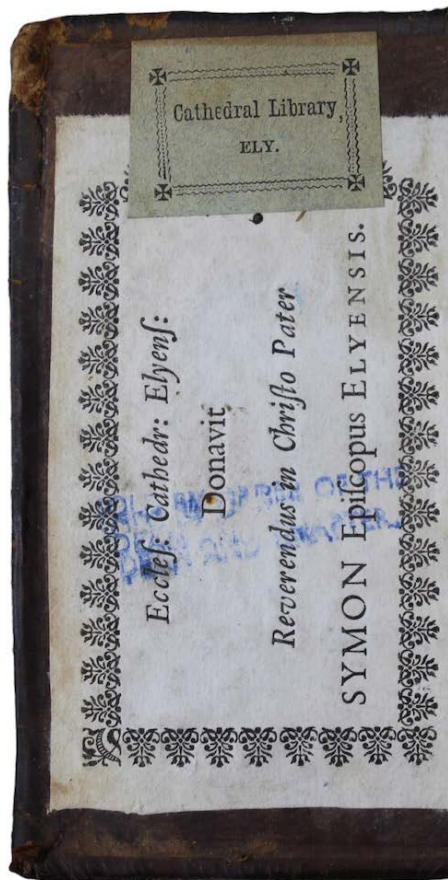 Cathedral Library,
ELY.
Eccleſ: Cathedr: Elyenſ:
Donavit
Reverendus in Chriſto Pater
SYMON Epiſcopus ELYENSIS.
OF THE
DEAN AND CHAPTER